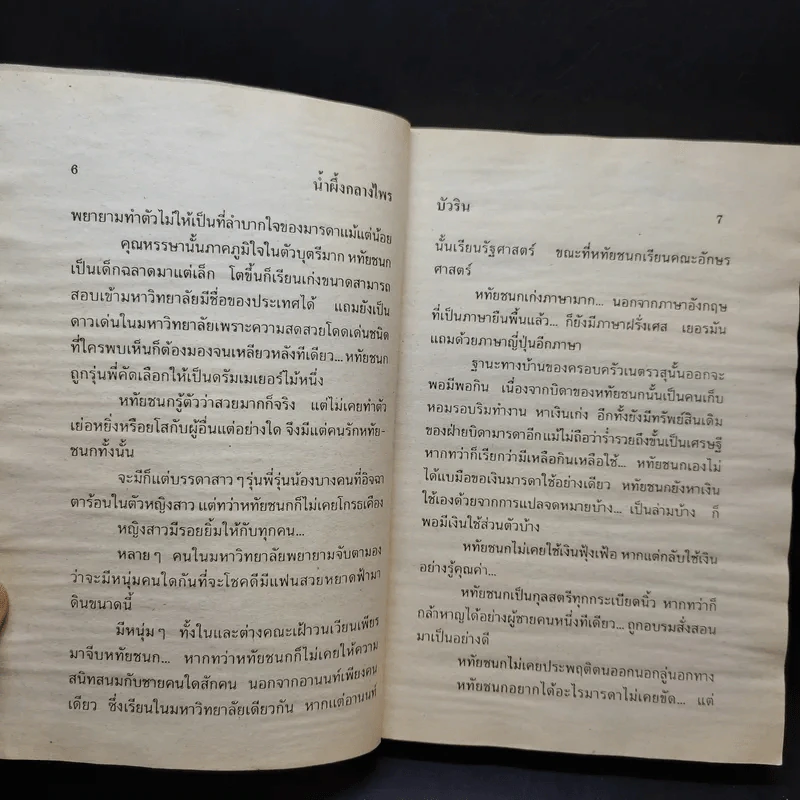 6
น้ำผึ้งกลางไพร
พยายามทำตัวไม่ให้เป็นที่ลำบากใจของมารดาแม้แต่น้อย
คุณหรรษานั้นภาคภูมิใจในตัวบุตรีมาก หทัยชนก
เป็นเด็กฉลาดมาแต่เล็ก โตขึ้นก็เรียนเก่งขนาดสามารถ
สอบเข้ามหาวิทยาลัยมีชื่อของประเทศได้ แถมยังเป็น
ดาวเด่นในมหาวิทยาลัยเพราะความสดสวยโดดเด่นชนิด
ที่ใครพบเห็นก็ต้องมองจนเหลียวหลังทีเดียว... หทัยชนก
ถูกรุ่นพี่คัดเลือกให้เป็นดรัมเมเยอร์ไม้หนึ่ง
หทัยชนกรู้ตัวว่าสวยมากก็จริง แต่ไม่เคยทำตัว
เย่อหยิ่งหรือยโสกับผู้อื่นแต่อย่างใด จึงมีแต่คนรักหทัย-
ชนกทั้งนั้น
จะมีก็แต่บรรดาสาว ๆ รุ่นพี่รุ่นน้องบางคนที่อิจฉา
ตาร้อนในตัวหญิงสาว แต่ทว่าหทัยชนกก็ไม่เคยโกรธเคือง
หญิงสาวมีรอยยิ้มให้กับทุกคน...
หลาย ๆ คนในมหาวิทยาลัยพยายามจับตามอง
ว่าจะมีหนุ่มคนใดกันที่จะโชคดีมีแฟนสวยหยาดฟ้ามา
ดินขนาดนี้
มีหนุ่ม ๆ ทั้งในและต่างคณะเฝ้าวนเวียนเพียร
มาจีบหทัยชนก... หากทว่าหทัยชนกก็ไม่เคยให้ความ
สนิทสนมกับชายคนใดสักคน นอกจากอานนท์เพียงคน
เดียว ซึ่งเรียนในมหาวิทยาลัยเดียวกัน หากแต่อานนท์
บัวริน
7
นั้นเรียนรัฐศาสตร์ ขณะที่หทัยชนกเรียนคณะอักษร
ศาสตร์
หทัยชนกเก่งภาษามาก... นอกจากภาษาอังกฤษ
ที่เป็นภาษายืนพื้นแล้ว... ก็ยังมีภาษาฝรั่งเศส เยอรมัน
แถมด้วยภาษาญี่ปุ่นอีกภาษา
ฐานะทางบ้านของครอบครัวเนตรวสุนั้นออกจะ
พอมีพอกิน เนื่องจากบิดาของหทัยชนกนั้นเป็นคนเก็บ
หอมรอบริมทำงาน หาเงินเก่ง อีกทั้งยังมีทรัพย์สินเดิม
ของฝ่ายบิดามารดาอีกแม้ไม่ถือว่าร่ำรวยถึงขั้นเป็นเศรษฐี
หากทว่าก็เรียกว่ามีเหลือกินเหลือใช้... หทัยชนกเองไม่
ได้แบมือขอเงินมารดาใช้อย่างเดียว หทัยชนกยังหาเงิน
ใช้เองด้วยจากการแปลจดหมายบ้าง... เป็นล่ามบ้าง ก็
พอมีเงินใช้ส่วนตัวบ้าง
หทัยชนกไม่เคยใช้เงินฟุ้งเฟ้อ หากแต่กลับใช้เงิน
อย่างรู้คุณค่า...
หทัยชนกเป็นกุลสตรีทุกกระเบียดนิ้ว หากทว่าก็
กล้าหาญได้อย่างผู้ชายคนหนึ่งทีเดียว... ถูกอบรมสั่งสอน
มาเป็นอย่างดี
หทัยชนกไม่เคยประพฤติตนออกนอกลู่นอกทาง
หทัยชนกอยากได้อะไรมารดาไม่เคยขัด... แต่